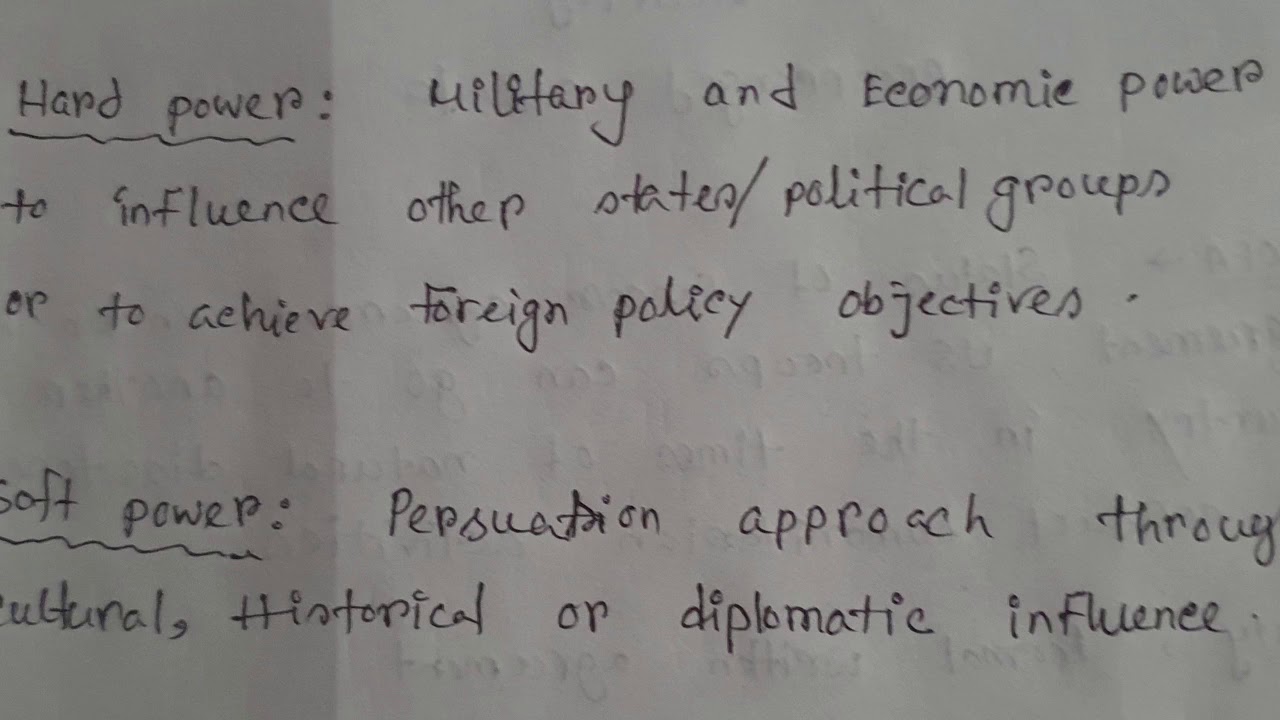 Hard power: Military and Economic power
to influence other states/political groups
or to achieve foreign policy objectives.
soft power: Persuasion approach throug
cultural, Historical or diplomatic influence.